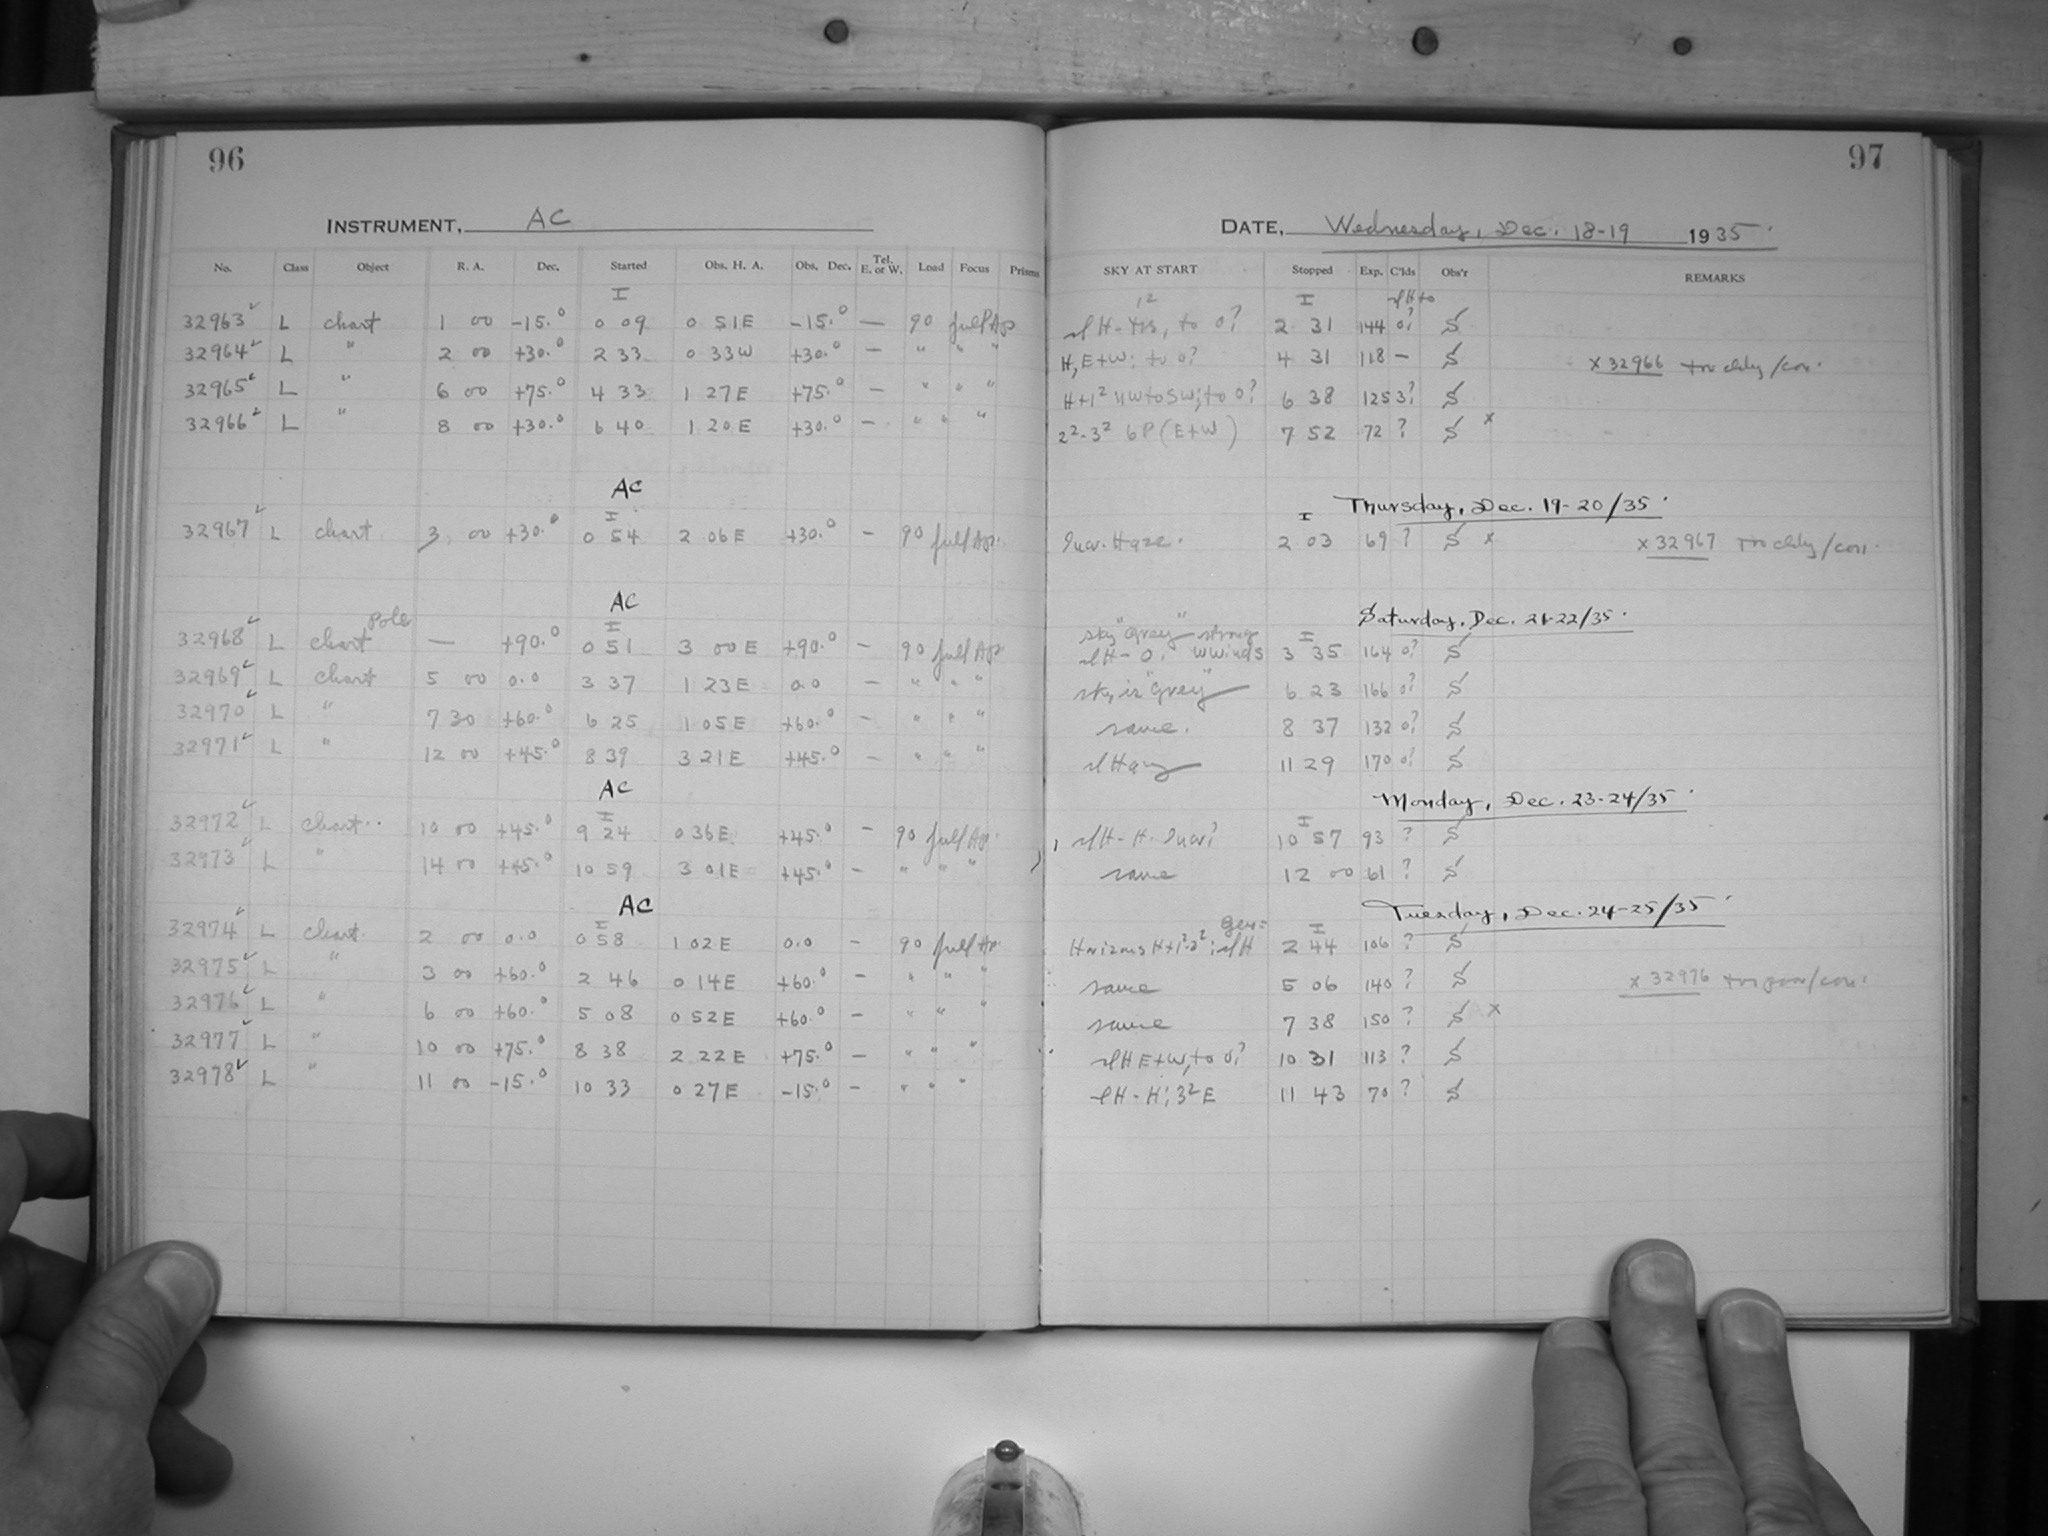 96
INSTRUMENT, AC
No. Class Object R. A. Dec. Started Obs. H. A. Obs. Dec. Tel. E. or W. Load Focus Prisms
I
32963 L chart 1 00 -15.0 0 09 0 51E -15.0 — 90 full Ap
32964 L " 2 00 +30.0 2 33 0 33W +30.0 — " " "
32965 L " 6 00 +75.0 4 33 1 27E +75.0 — " " "
32966 L " 8 00 +30.0 6 40 1 20E +30.0 — " " "
AC
I
32967 L chart 3 00 +30.0 0 54 2 06E +30.0 — 90 full Ap.
AC
pole I
32968 L chart — +90.0 0 51 3 00E +90.0 — 90 full Ap
32969 L chart 5 00 0.0 3 37 1 23E 0.0 — " " "
32970 L " 7 30 +60.0 6 25 1 05E +60.0 — " " "
32971 L " 12 00 +45.0 8 39 3 21E +45.0 — " " "
AC
I
32972 L chart 10 00 +45.0 9 24 0 36E +45.0 — 90 full Ap.
32973 L " 14 00 +45.0 10 59 3 01E +45.0 — " " "
AC
I
32974 L chart 2 00 0.0 0 58 1 02E 0.0 — 90 full Ap
32975 L " 3 00 +60.0 2 46 0 14E +60.0 — " " "
32976 L " 6 00 +60.0 5 08 0 52E +60.0 — " " "
32977 L " 10 00 +75.0 8 38 2 22E +75.0 — " " "
32978 L " 11 00 -15.0 10 33 0 27E -15.0 — " " "
97
DATE, Wednesday, Dec. 18-19 1935
SKY AT START Stopped Exp. C'lds Obs'r REMARKS
I slH to
slH- to 0? 2 31 144 0? S
H, E+W; to 0? 4 31 118 — S x 32966
H+1² NW to SW; to 0? 6 38 125 3? S
2²-3² 6P (E+W) 7 52 72 ? S x
Thursday, Dec. 19-20/35
I
Incr. Haze. 2 03 69 ? S x x 32967
Saturday, Dec. 21-22/35
sky "Grey" strong I
slH-0. W winds 3 35 164 0? S
sky is "Grey" 6 23 166 0? S
same. 8 37 132 0? S
slHazy 11 29 170 0? S
Monday, Dec. 23-24/35
I
slH-H. Incr? 10 57 93 ? S
same 12 00 61 ? S
Tuesday, Dec. 24-25/35
gen= I
Horizons H+1²-2²; slH 2 44 106 ? S
same 5 06 140 ? S x 32976
same 7 38 150 ? S x
slH E+W, to 0? 10 31 113 ? S
slH-H; 3²E 11 43 70 ? S